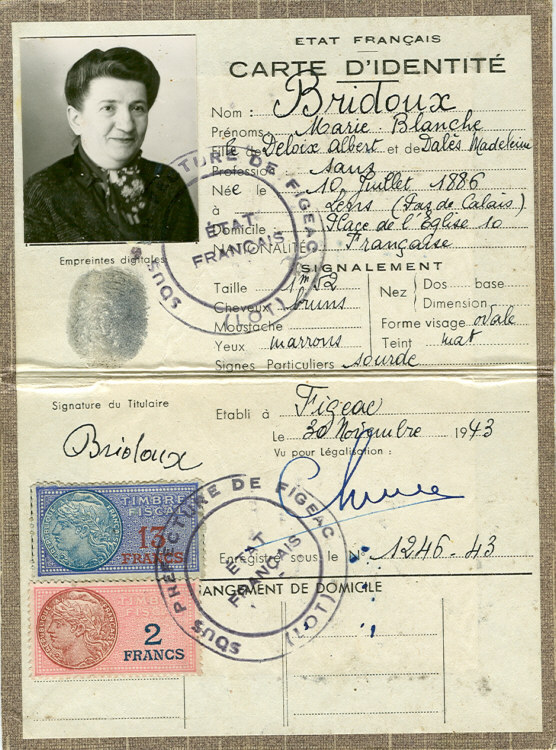 ETAT FRANÇAIS
CARTE D'IDENTITÉ
Nom : Bridoux
Prénoms Marie Blanche
Fille de Deloix Albert et de Dalès Madeleine
Profession sans
Née le 10 Juillet 1886
à Lens (Pas de Calais)
Domicile Place de l'Eglise 10
NATIONALITÉ Française
SOUS PRÉFECTURE DE FIGEAC
(LOT)
ÉTAT
FRANÇAIS
Empreintes digitales
SIGNALEMENT
Taille 1m52
Cheveux bruns
Moustache
Yeux marrons
Nez Dos base
Dimension
Forme visage ovale
Teint mat
Signes Particuliers sourde
Signature du Titulaire
Bridoux
Etabli à Figeac
Le 30 Novembre 1943
Vu pour Légalisation :
Enregistré sous le N° 1246-43
TIMBRE
FISCAL
13
FRANCS
SOUS PRÉFECTURE DE FIGEAC
(LOT)
ÉTAT
FRANÇAIS
CHANGEMENT DE DOMICILE
TIMBRE
FISCAL
2
FRANCS